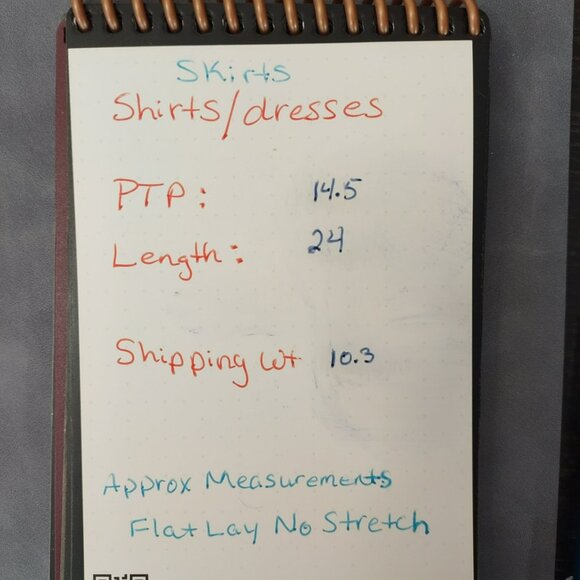 Skirts
Shirts/dresses
PTP: 14.5
Length: 24
Shipping Wt 10.3
Approx Measurements
Flat Lay No Stretch